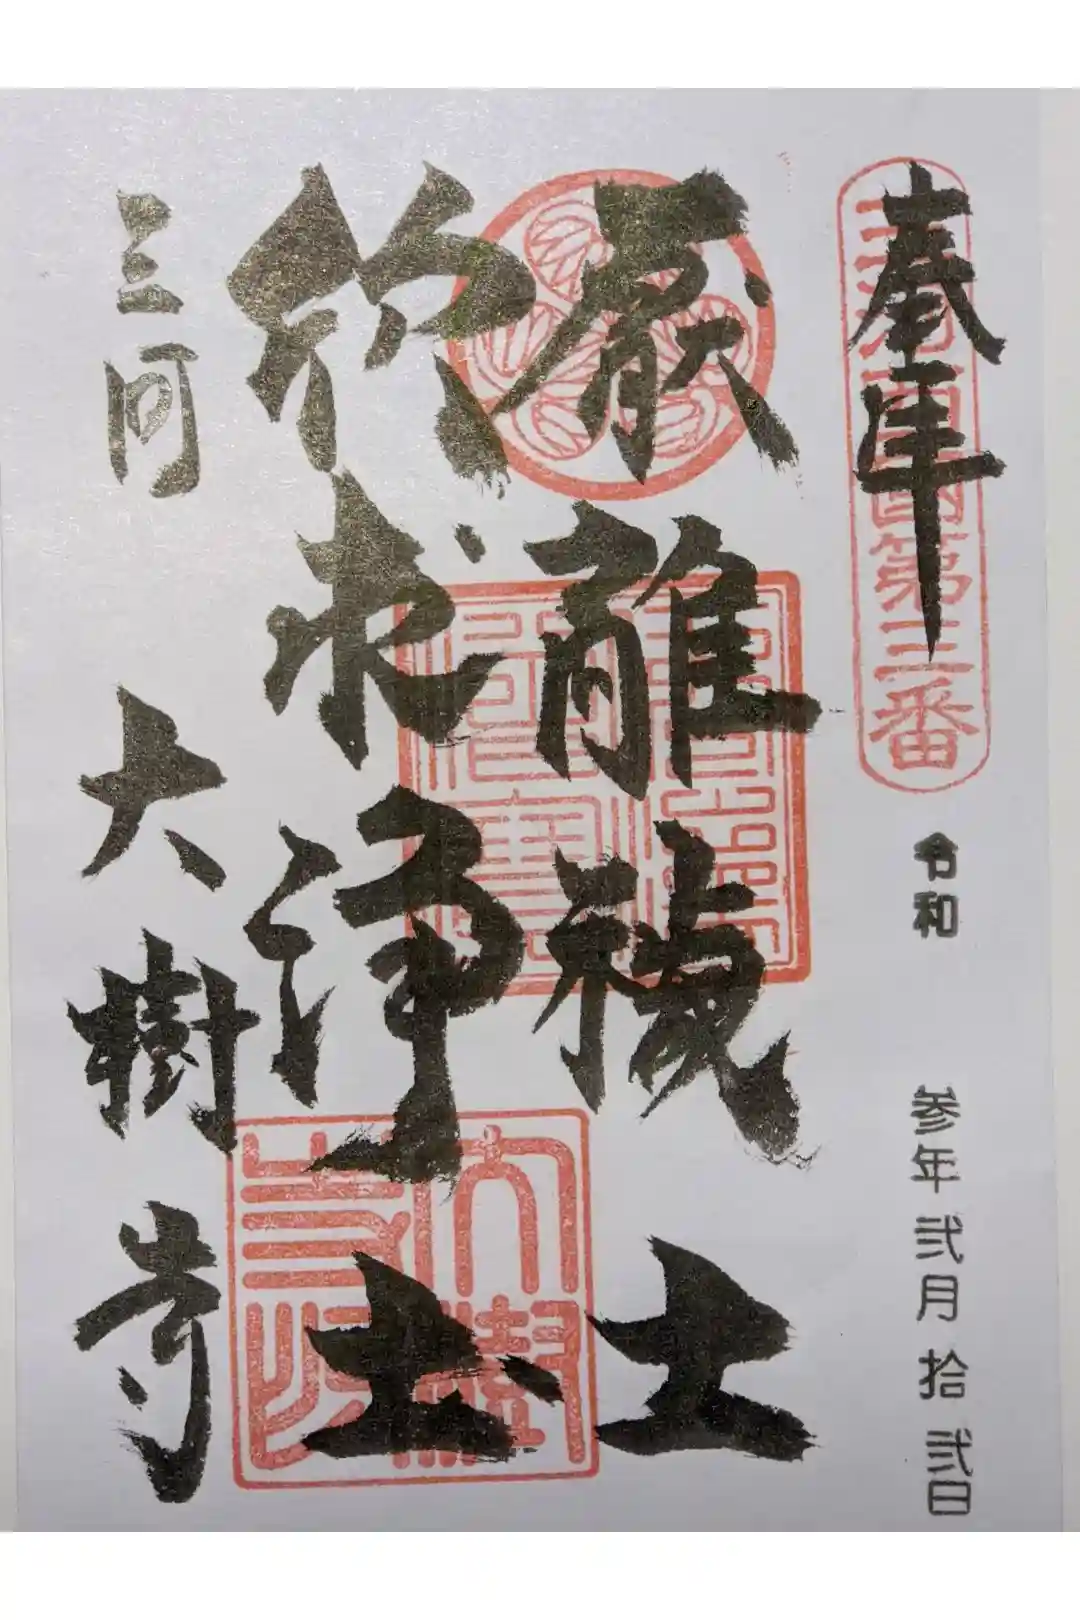 奉拝
三河西国第三番
令和 参年 弐月 拾弐日
厭離穢土
欣求浄土
三河 大樹寺